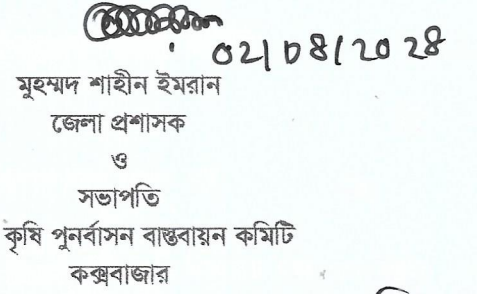 ০২/০৪/২০২৪
মুহম্মদ শাহীন ইমরান
জেলা প্রশাসক
ও
সভাপতি
কৃষি পুনর্বাসন বাস্তবায়ন কমিটি
কক্সবাজার